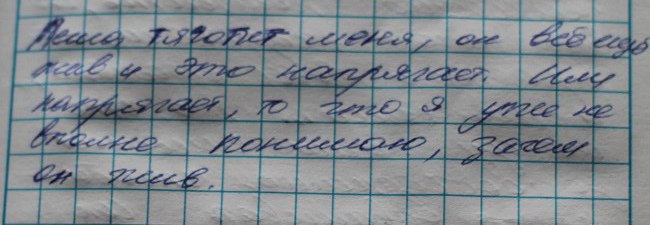 Леша тяготит меня, он всё ещё
жив и это напрягает. Или
напрягает, то что я уже не
вполне понимаю, зачем
он жив.